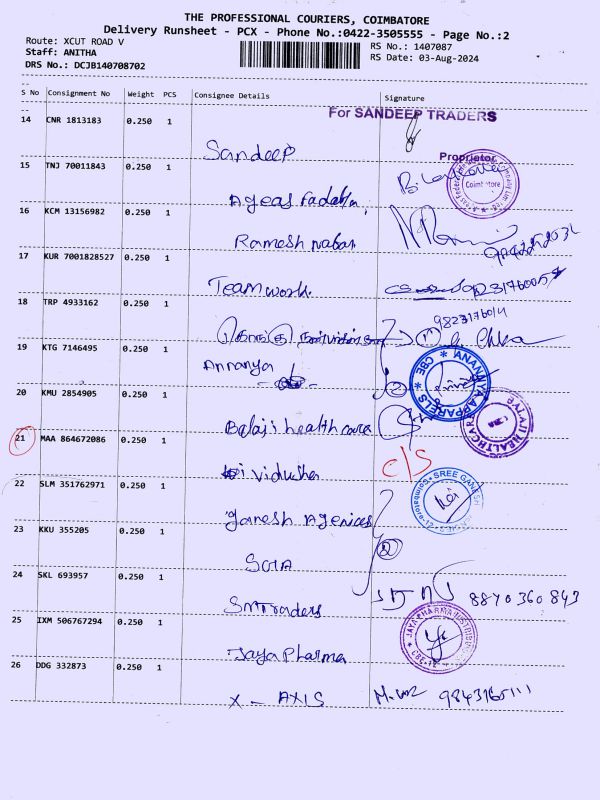 THE PROFESSIONAL COURIERS, COIMBATORE
Delivery Runsheet - PCX - Phone No.:0422-3505555 - Page No.:2
Route: XCUT ROAD V
RS No.: 1407087
Staff: ANITHA
RS Date: 03-Aug-2024
DRS No.: DCJB140708702
S No Consignment No Weight PCS Consignee Details Signature
For SANDEEP TRADERS
14 CNR 1813183 0.250 1 Sandeep
Proprietor
15 TNJ 70011843 0.250 1 Ageas
Coimbatore
16 KCM 13156982 0.250 1 Ramesh
17 KUR 7001828527 0.250 1 Team work
18 TRP 4933162 0.250 1
9823176014
19 KTG 7146495 0.250 1 Annanya
ANANYA APPARELS * CBE *
20 KMU 2854905 0.250 1 Balaji health care
BALAJI HEALTHCARE
21 MAA 864672086 0.250 1 Vidusha
C/S
22 SLM 351762971 0.250 1 Ganesh Agenices
SREE GANESH
Coimbatore-12
23 KKU 355205 0.250 1
24 SKL 693957 0.250 1 SM Traders 8870360843
25 IXM 506767294 0.250 1 Jaya Pharma
JAYA PHARMA DISTRIBUTORS
CBE-12
26 DDG 332873 0.250 1 X - AXIS 9843165111